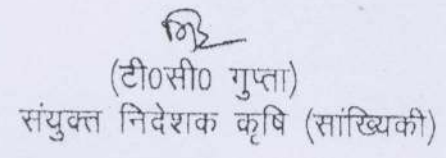 (टी0सी0 गुप्ता)
संयुक्त निदेशक कृषि (सांख्यिकी)